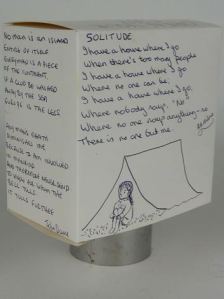 NO MAN IS AN ISLAND
ENTIRE OF ITSELF
EVERYMAN IS A PIECE
OF THE CONTINENT
IF A CLOD BE WASHED
AWAY BY THE SEA
EUROPE IS THE LESS
ANY MANS DEATH
DIMINISHES ME
BECAUSE I AM INVOLVED
IN MANKIND
AND THEREFORE NEVER SEND
TO KNOW FOR WHOM THE
BELL TOLLS
IT TOLLS FOR THEE
John Donne
SOLITUDE
I have a house where I go
When there's too many people
I have a house where I go
Where no one can be,
I have a house where I go,
Where nobody says "No"
Where no one says anything - so
There is no one but me.